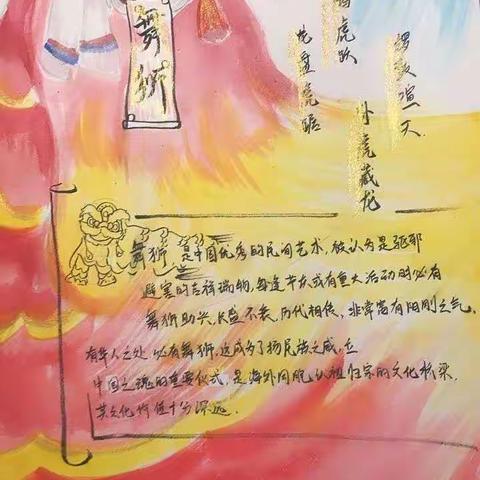 舞狮
天
虎跃
卧虎藏龙
龙盘虎踞
舞狮 是中国优秀的民间艺术,被认为是驱邪
避害的吉祥瑞物,每逢节庆或有重大活动时必有
舞狮助兴,长盛不衰,历代相传,非常富有阳刚之气。
有华人之处 必有舞狮,这成为了扬民族之威,立
中国之魂的重要仪式,是海外同胞认祖归宗的文化桥梁,
其文化价值十分深远.